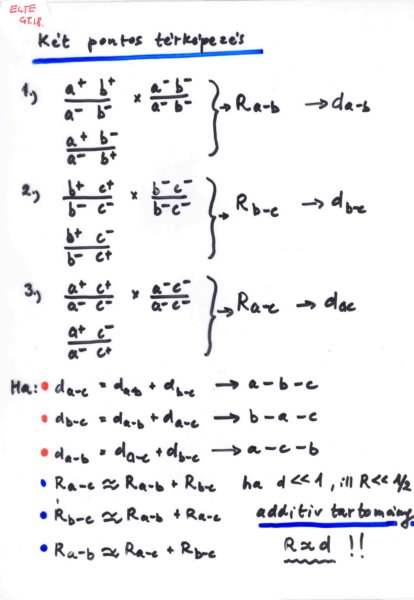 ELTE
GI.18.
Két pontos térképezés
1.) a⁺ b⁺ / a⁻ b⁻ × a⁻ b⁻ / a⁻ b⁻ } → R a-b → d a-b
a⁺ b⁻ / a⁻ b⁺
2.) b⁺ c⁺ / b⁻ c⁻ × b⁻ c⁻ / b⁻ c⁻ } → R b-c → d b-c
b⁺ c⁻ / b⁻ c⁺
3.) a⁺ c⁺ / a⁻ c⁻ × a⁻ c⁻ / a⁻ c⁻ } → R a-c → d ac
a⁺ c⁻ / a⁻ c⁺
Ha: • d a-c = d a-b + d b-c → a-b-c
• d b-c = d a-b + d a-c → b-a-c
• d a-b = d a-c + d b-c → a-c-b
• R a-c ≈ R a-b + R b-c ha d<<1, ill R<<1/2
• R b-c ≈ R a-b + R a-c additív tartomány
• R a-b ≈ R a-c + R b-c R≈d !!